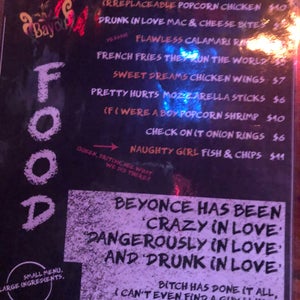 Bayou
IRREPLACEABLE POPCORN CHICKEN $10
DRUNK IN LOVE MAC & CHEESE BITES
FLAWLESS CALAMARI
FRENCH FRIES THEY RUN THE WORLD $5
SWEET DREAMS CHICKEN WINGS $7
PRETTY HURTS MOZZARELLA STICKS $6
IF I WERE A BOY POPCORN SHRIMP $10
CHECK ON IT ONION RINGS $6
NAUGHTY GIRL FISH & CHIPS $11
WE DO THERE!
FOOD
BEYONCE HAS BEEN
'CRAZY IN LOVE'
'DANGEROUSLY IN LOVE'
AND 'DRUNK IN LOVE'
BITCH HAS DONE IT ALL,
I CAN'T EVEN FIND A
SMALL MENU.
LARGE INGREDIENTS.